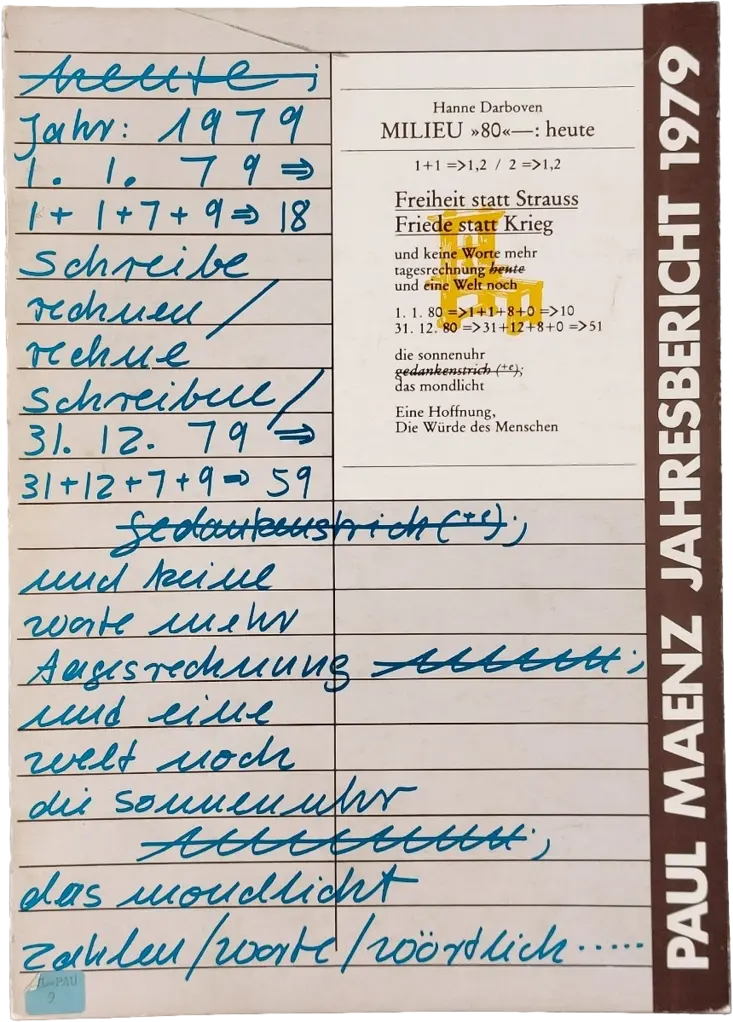 heute;
Jahr: 1979
1. 1. 79 ⇒
1+1+7+9 ⇒ 18
Schreibe
rechnen /
rechne
Schreiben /
31. 12. 79 ⇒
31+12+7+9 ⇒ 59
gedankenstrich (+e);
und keine
worte mehr
Tagesrechnung
und eine
welt noch
die sonnenuhr
das mondlicht
zahlen/worte/wörtlich.....
Hanne Darboven
MILIEU »80«—: heute
1+1 =>1,2 / 2 =>1,2
Freiheit statt Strauss
Friede statt Krieg
und keine Worte mehr
tagesrechnung heute
und eine Welt noch
1. 1. 80 =>1+1+8+0 =>10
31. 12. 80 =>31+12+8+0 =>51
die sonnenuhr
gedankenstrich (+e);
das mondlicht
Eine Hoffnung,
Die Würde des Menschen
PAUL MAENZ JAHRESBERICHT 1979
PAU
9